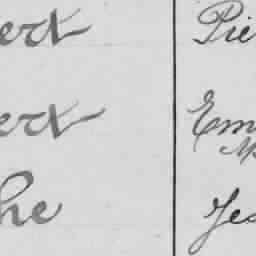 ert Pie
ert Em
he Jes